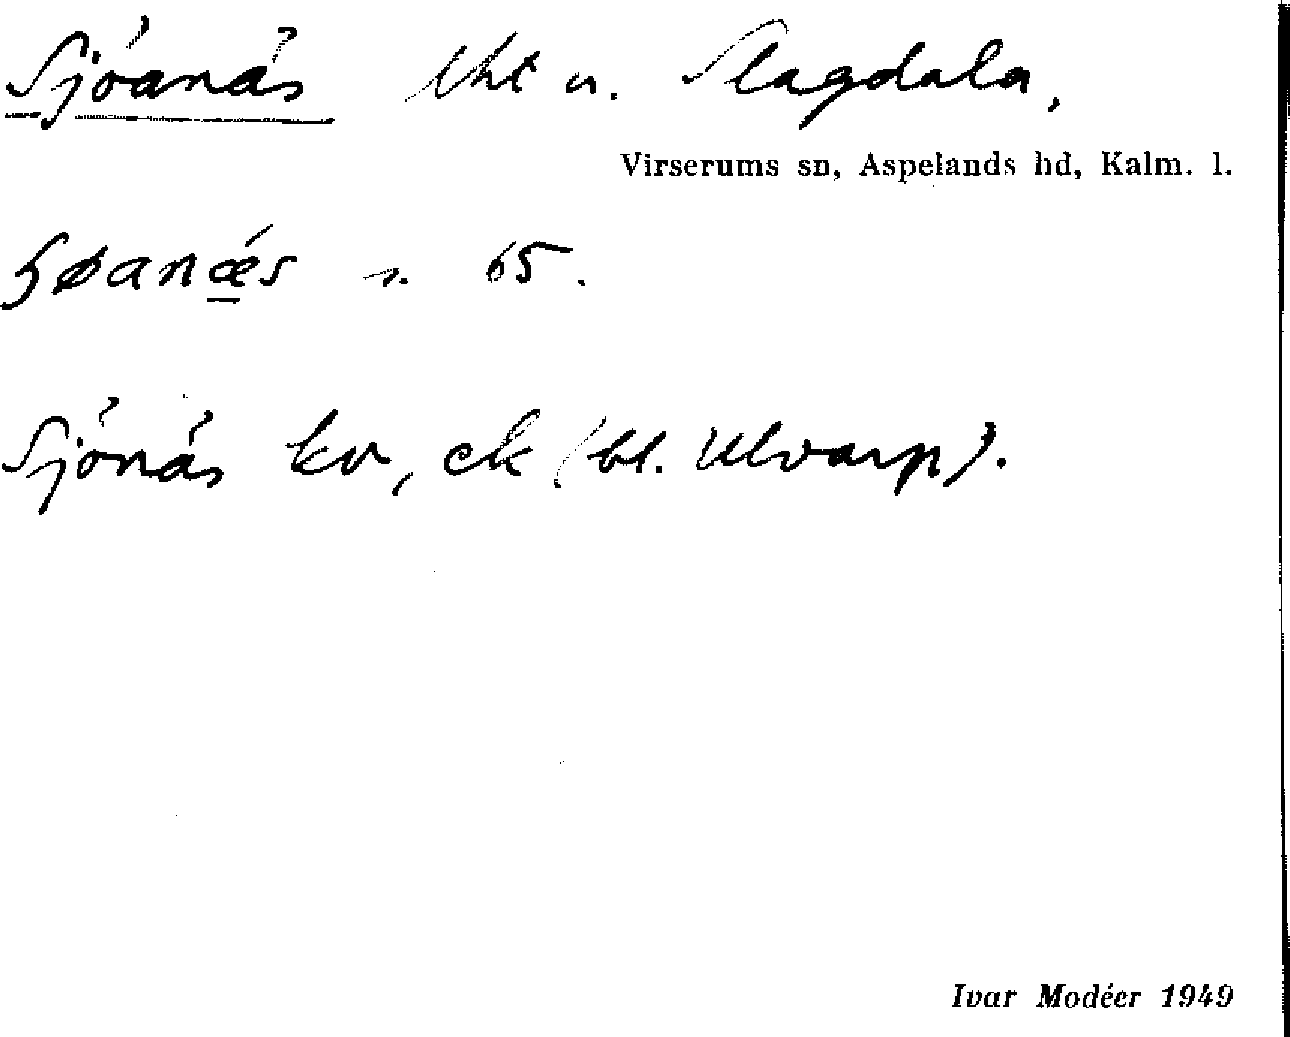 Sjöanäs lht u. Slagdala,
Virserums sn, Aspelands hd, Kalm. l.
ɧøanǽs s. 65.
Sjönäs kv, ek (bl. Ulvarp).
Ivar Modéer 1949